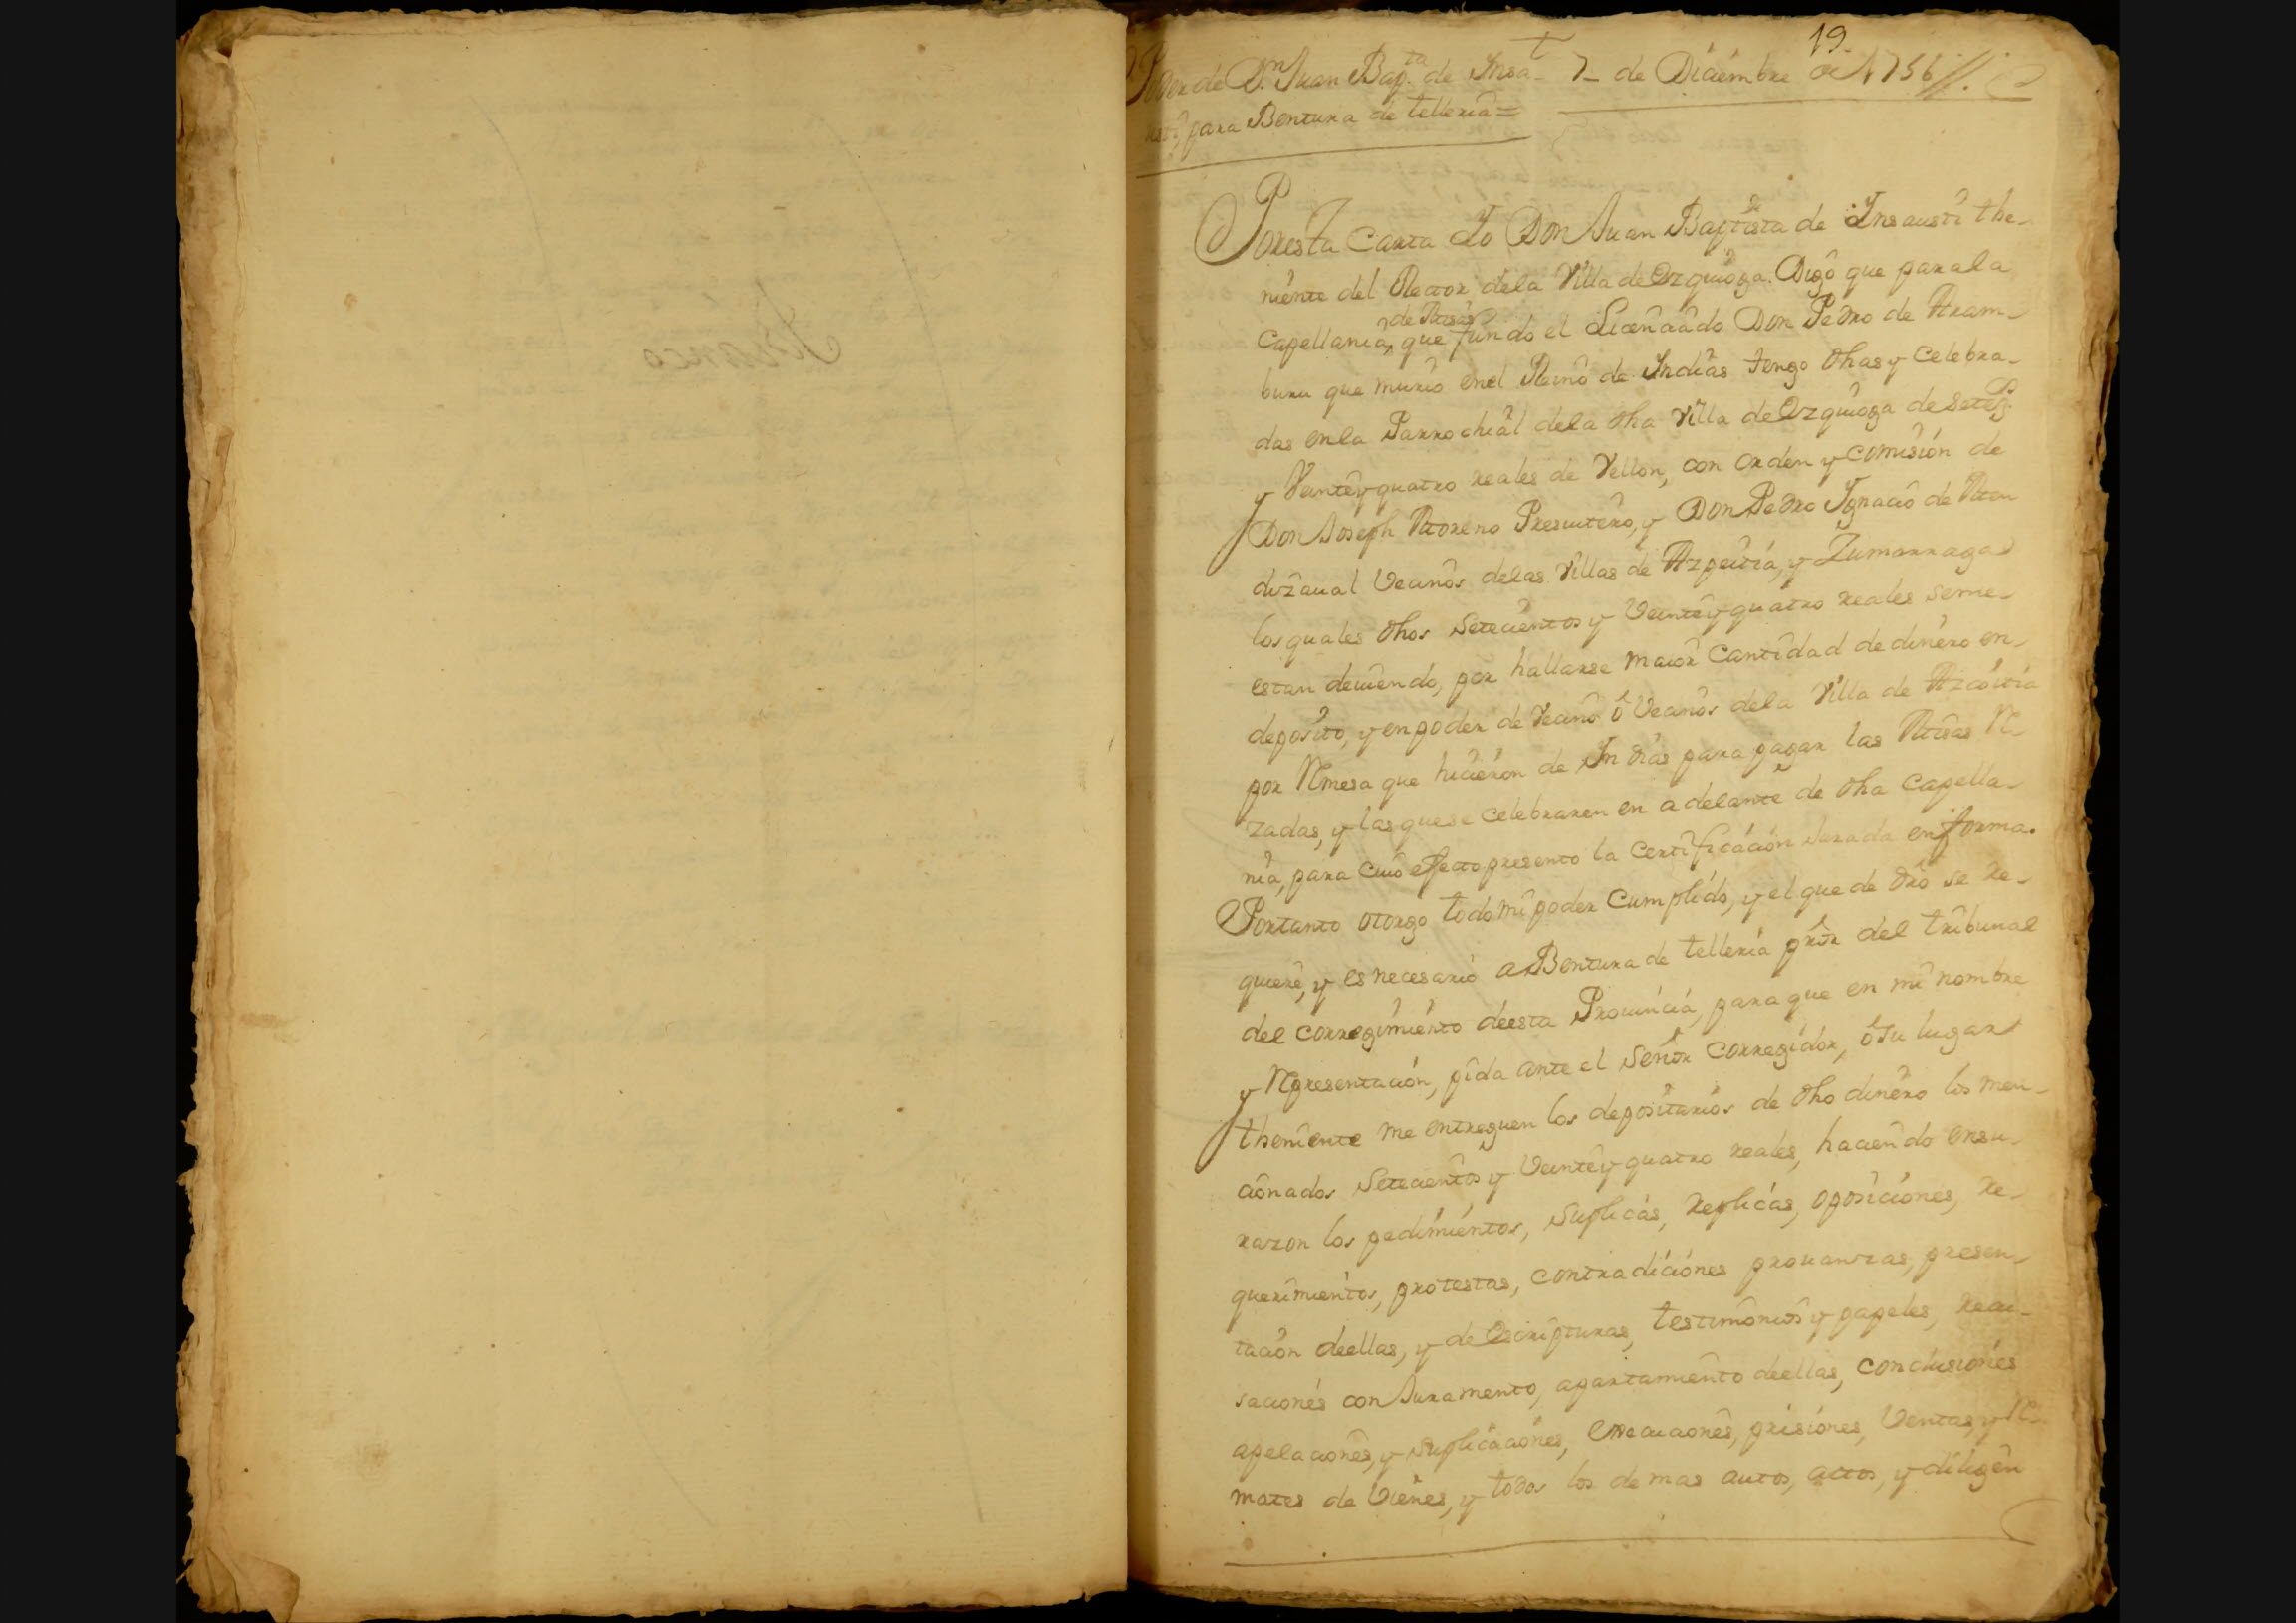 19.
Poder de Dn. Juan Bapta. de Insa- 7- de Diciembre de 1756 //.
usti, para Bentura de telleria=
Por esta Carta Yo Don Juan Baptista de Insausti the-
niente del Rector dela Villa de Ezquioga. Digo que para la
de Misas
Capellania, que fundo el Licenciado Don Pedro de Aram-
buru que murio en el Reino de Indias tengo dhas y Celebra-
das en la Parrochial dela dha Villa de Ezquioga de setecs.
y Veinte y quatro reales de Vellon, con orden y comision de
Don Joseph Moreno Presuitero, y Don Pedro Ignacio de
dizaual Vecinos delas Villas de Azpeitia, y Zumarraga
los quales dhos Setecientos y Veinte y quatro reales seme
estan deuiendo, por hallarse maior Cantidad de dinero en
deposito, y en poder de Vecino ô Vecinos dela Villa de Azcoitia
por Rmesa que hicieron de Indias para pagar las Misas R-
zadas, y las que se celebraren en adelante de dha Capella-
nia, para cuio efecto presento la certificacion Jurada en forma.
Portanto otorgo todo mi poder Cumplido, y el que de dro se re-
quiere, y es necesario a Bentura de telleria pror del tribunal
del corregimiento de esta Prouincia, para que en mi nombre
y Rpresentacion, pida ante el Señor Corregidor, ô su lugar
theniente me entreguen los depositarios de dho dinero los men-
cionados Setecientos y Veinte y quatro reales, haciendo en su
razon los pedimientos, Suplicas, Replicas, oposiciones, re-
querimientos, protestas, contradiciones prouanzas, presen-
tacion deellas, y de Escripturas, testimonios y papeles, recu-
saciones con Juramento, apartamiento deellas, conclusiones
apelaciones, y suplicaciones, execuciones, prisiones, Ventas, y R-
mates de Vienes, y todos los demas autos, actos, y diligen